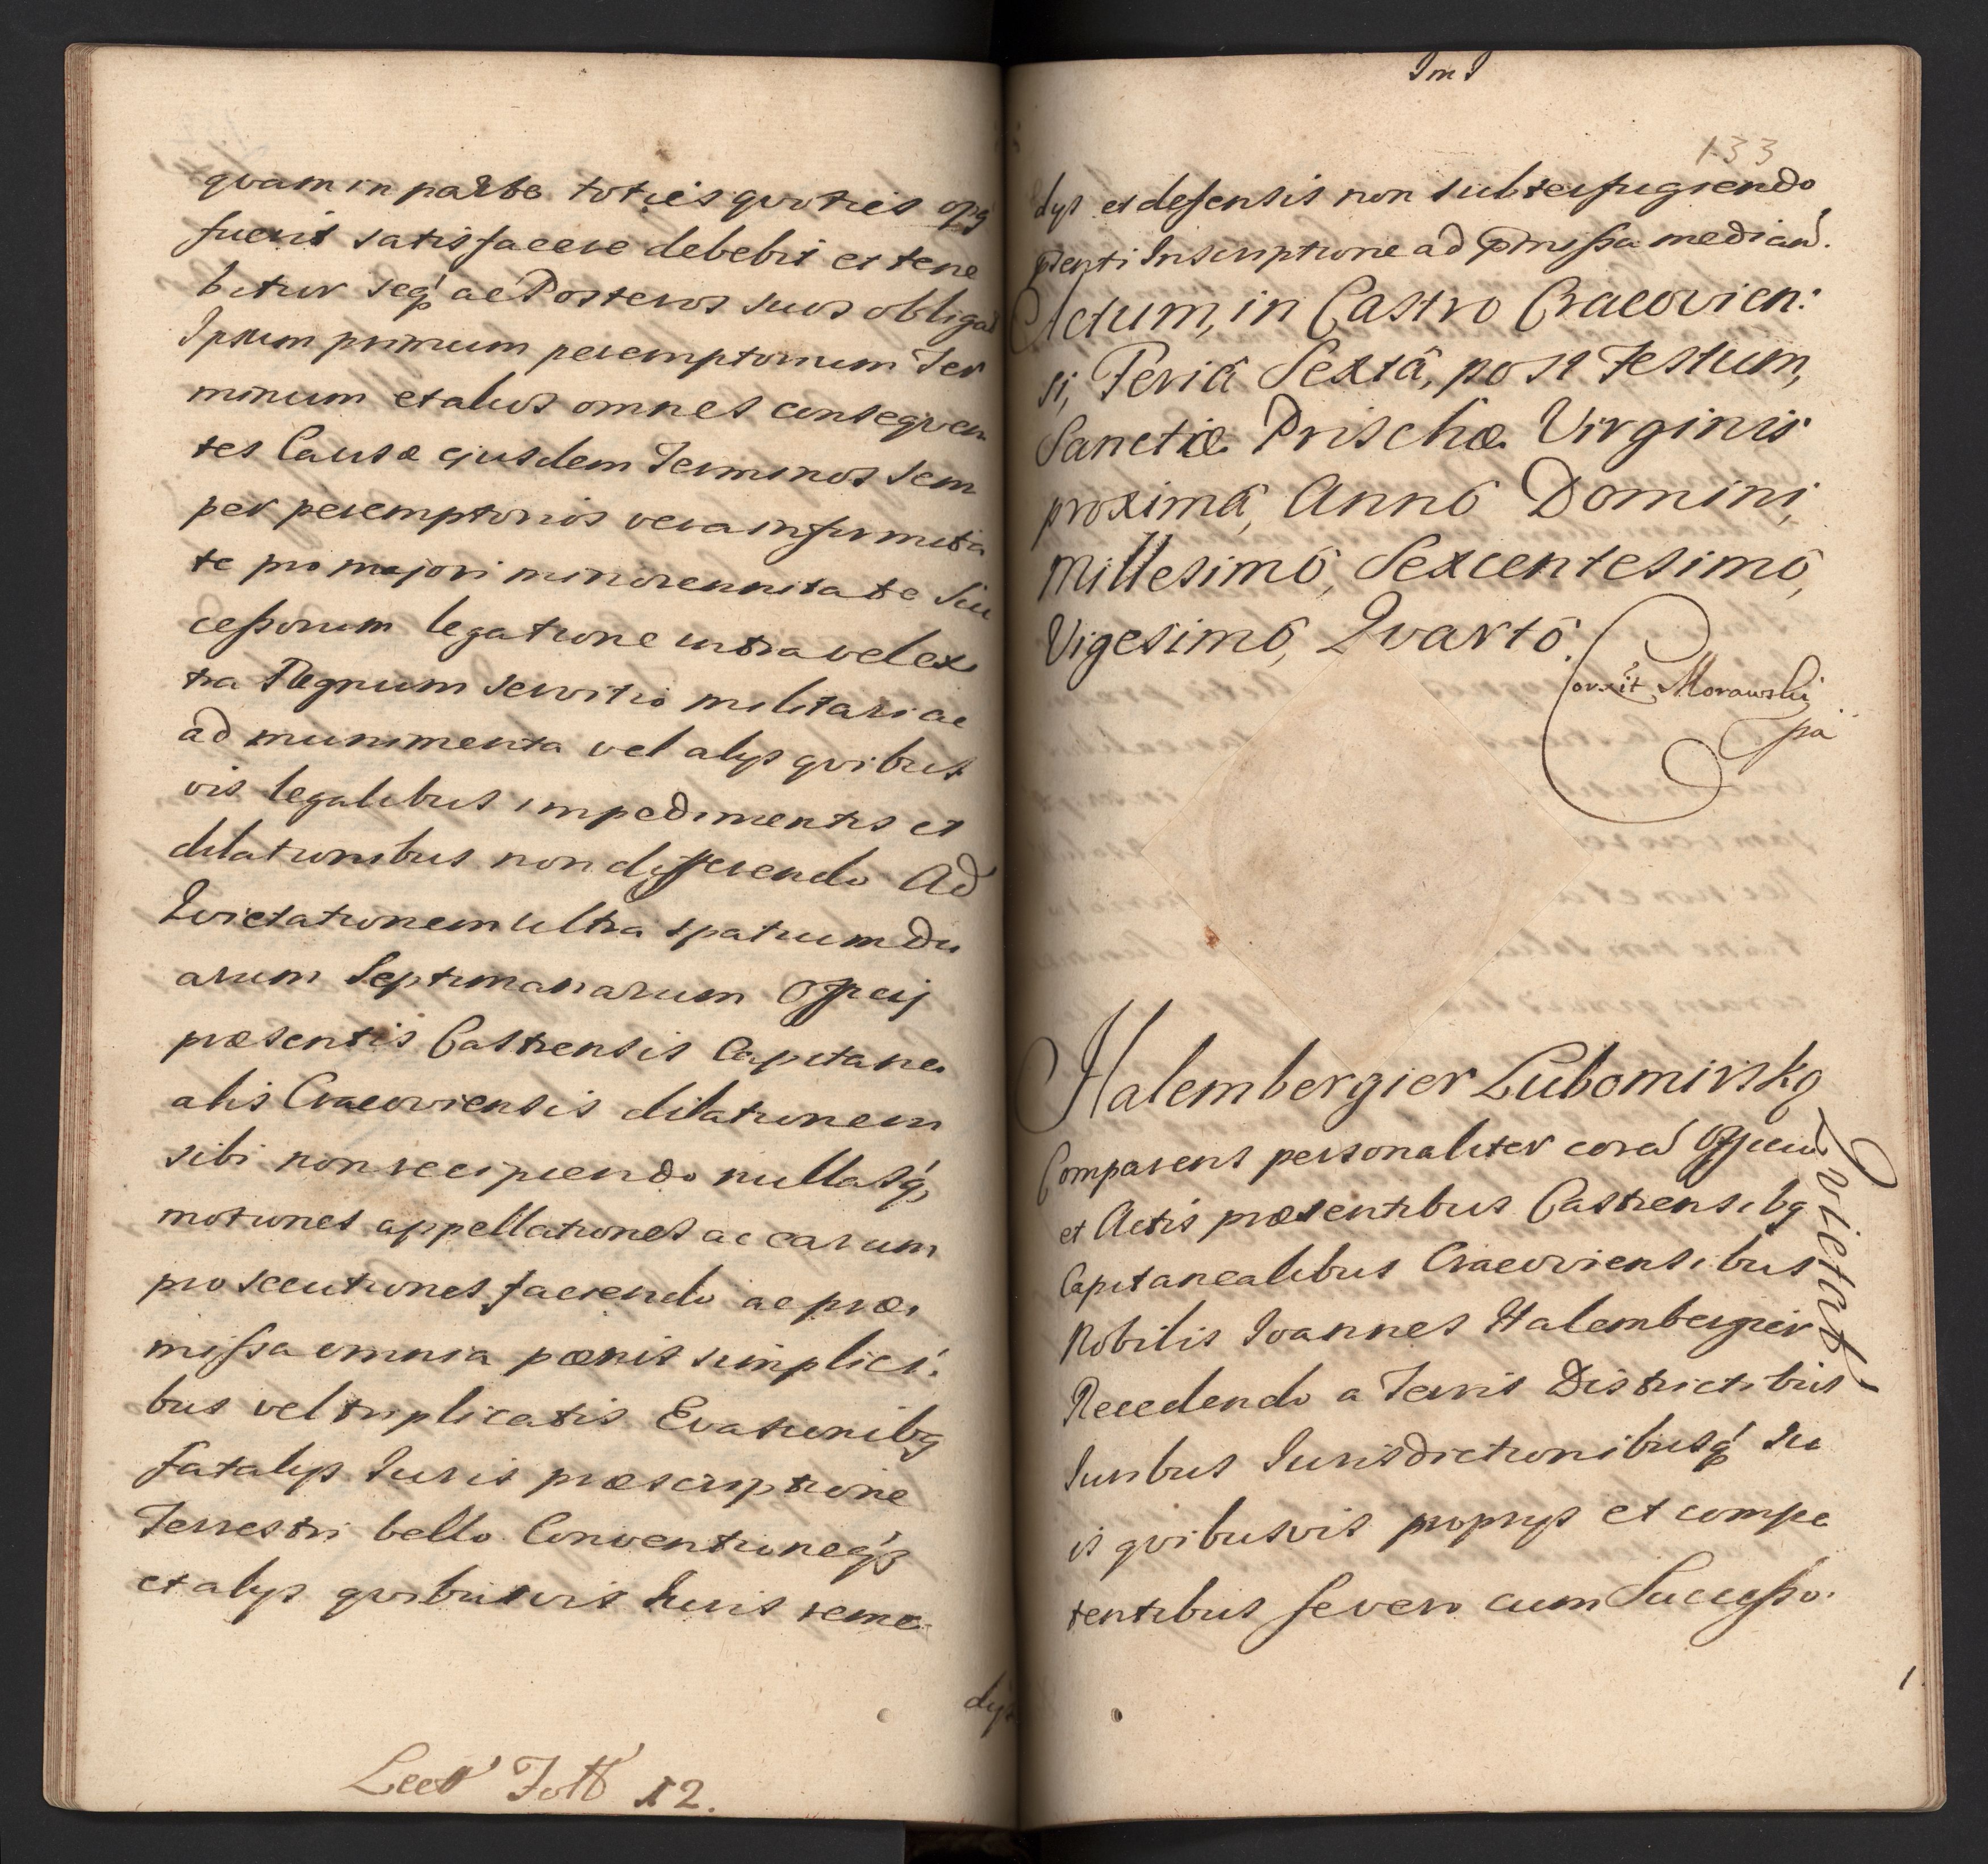 quam in parte toties quoties opq
fuerit satisfacere debebit et tene
bitur seq́ ac Posteros suos obligat
Ipsum primum peremptorium Ter
minum et alios omnes consequen
tes Causæ ejusdem Terminos sem
per peremptorios vera infirmita
te pro majori minorennitate Suc
ceßorum legatione intra vel ex
tra Regnum servitio militari ac
ad munimenta vel alys quibus
vis legalibus impedimentis et
dilationibus non differendo Ad
Quietationem ultra spatium du
arum Septimanarum Officij
præsentis Castrensis Capitane
alis Cracoviensis dilationem
sibi non recipiendo nullasq́,
motiones appellationes ac earum
prosecutiones faciendo ac præ
mißa omnia pœnis simplici:
bus vel triplicatis Evasionibq
fatalys Iuris præscriptione
Terrestri bello Conventioneq́
et alys quibusvis Iuris reme
dys
Lect Fott 12.
133
dys et defensis non subterfugiendo
pñti Inscriptione ad pmißa median.
Actum, in Castro Cracovien:
si, Feriâ Sextâ, post Festum,
Sanctæ Prischæ Virginis
proximâ, Annô Domini,
Millesimô, Sexcentesimô,
Vigesimô, Qvartô.
Corxit Morawski
mpa
Halembergier Lubomirsko
Quietat
Comparens personaliter cora Officio
et Actis præsentibus Castrensibq
Capitanealibus Cracoviensibus
Nobilis Ioannes Halembergier
Recedendo a Terris Districtibus
Iuribus Iurisdictionibusq́ su
is quibusvis proprys et compe
tentibus se vero cum Succeßo.